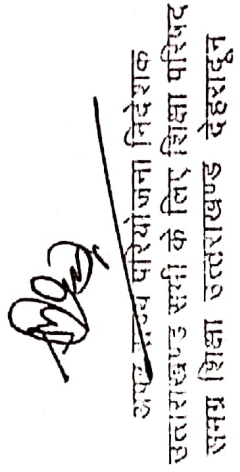 अपर राज्य परियोजना निदेशक
उत्तराखण्ड सभी के लिए शिक्षा परिषद
समग्र शिक्षा उत्तराखण्ड देहरादून